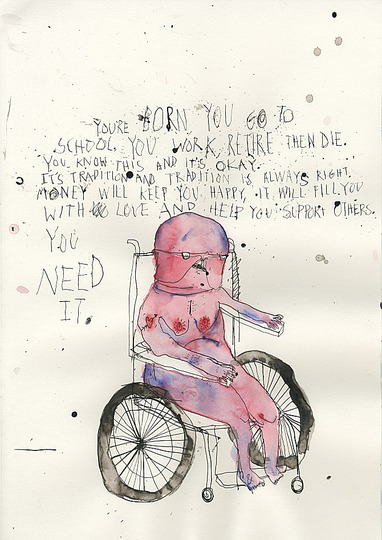 YOU'RE BORN YOU GO TO
SCHOOL, YOU WORK, RETIRE THEN DIE.
YOU KNOW THIS AND IT'S OKAY.
IT'S TRADITION AND TRADITION IS ALWAYS RIGHT.
MONEY WILL KEEP YOU HAPPY, IT WILL FILL YOU
WITH LOVE AND HELP YOU SUPPORT OTHERS.
YOU
NEED
IT.